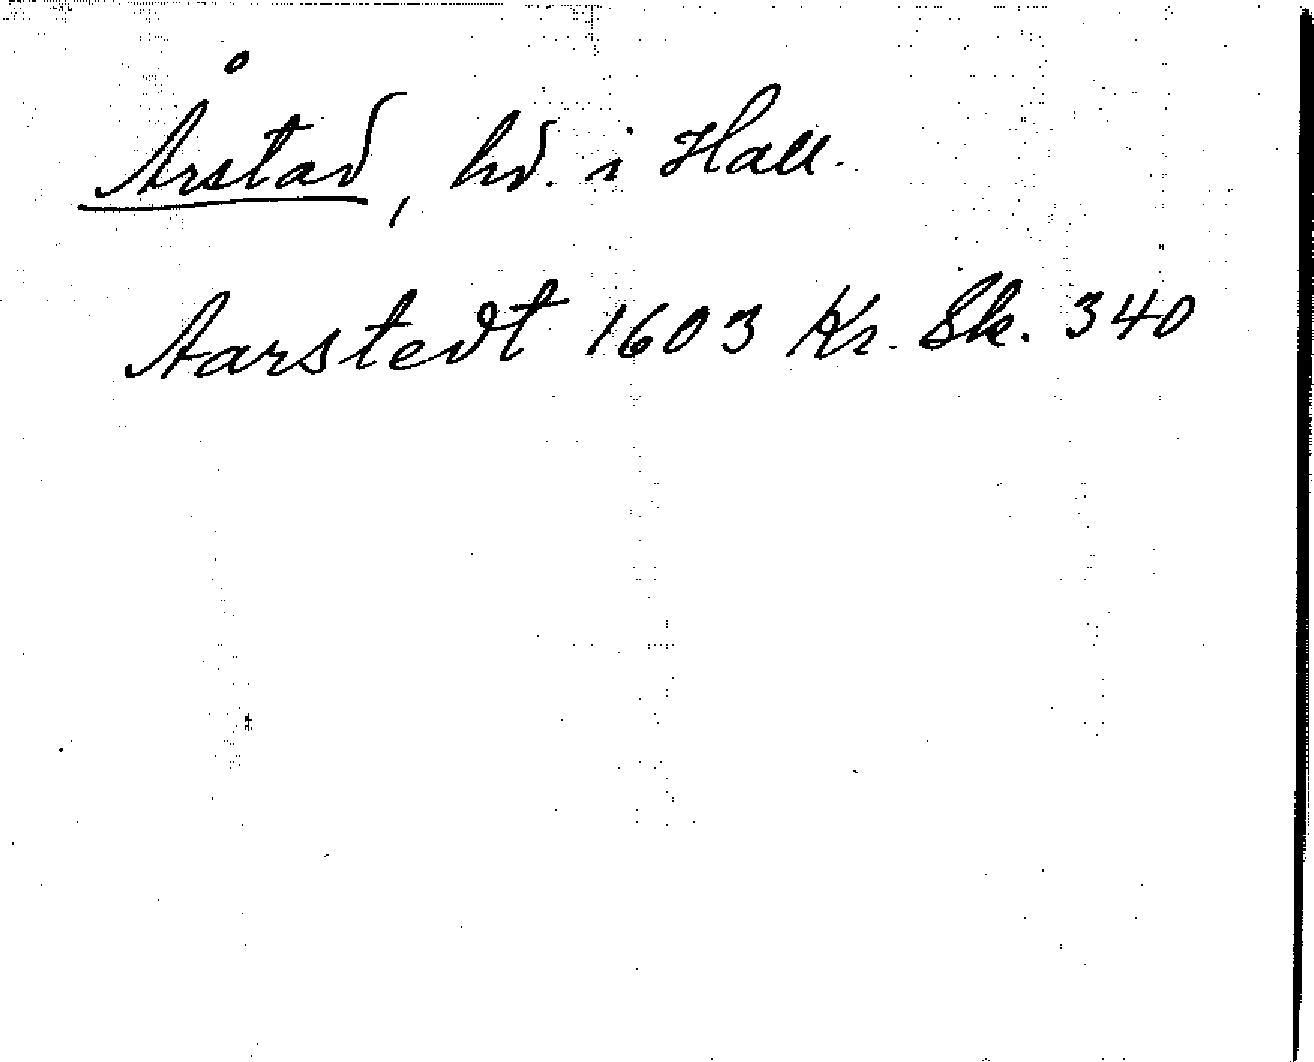 Årstad, hd. i Hall.
Aarstedt 1603 Kr. Sk. 340